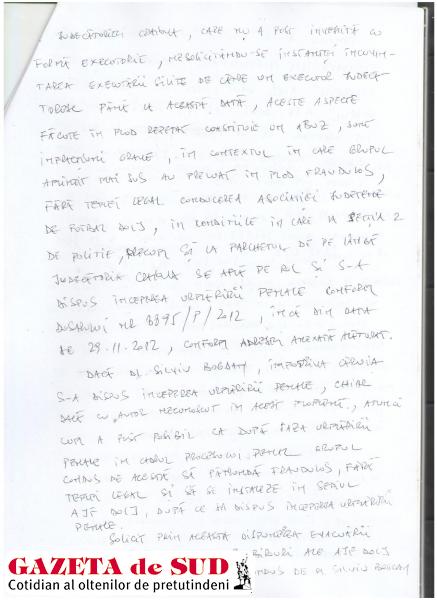 JUDECĂTORIEI CRAIOVA, CARE NU A FOST INVESTITĂ CU
FORMĂ EXECUTORIE, NESOLICITÂNDU-SE INSTANȚEI ÎNCUVIIN-
TAREA EXECUTĂRII SILITE DE CĂTRE UN EXECUTOR JUDECĂ
TORESC PÂNĂ LA ACEASTĂ DATĂ, ACESTE ASPECTE
FĂCUTE ÎN MOD REPETAT CONSTITUIE UN ABUZ, SUNT
INFRACȚIUNI GRAVE, ÎN CONTEXTUL ÎN CARE GRUPUL
AMINTIT MAI SUS AU PRELUAT ÎN MOD FRAUDULOS,
FĂRĂ TEMEI LEGAL CONDUCEREA ASOCIAȚIEI JUDEȚENE
DE FOTBAL DOLJ, ÎN CONDIȚIILE ÎN CARE LA SECȚIA 2
DE POLIȚIE, PRECUM ȘI LA PARCHETUL DE PE LÂNGĂ
JUDECĂTORIA CRAIOVA SE AFLĂ PE ROL ȘI S-A
DISPUS ÎNCEPEREA URMĂRIRII PENALE CONFORM
DOSARULUI NR 8895/P/2012, ÎNCĂ DIN DATA
DE 29.11.2012, CONFORM ADRESEI ANEXATĂ ALĂTURAT.
DACĂ DL SILVIU BOGDAN, ÎMPOTRIVA CĂRUIA
S-A DISPUS ÎNCEPEREA URMĂRIRII PENALE, CHIAR
DACĂ CU "AUTOR NECUNOSCUT" ÎN ACEST MOMENT, ATUNCI
CUM A FOST POSIBIL CA DUPĂ FAZA URMĂRIRII
PENALE ÎN CADRUL PROCESULUI PENAL GRUPUL
CONDUS DE ACESTA SĂ PĂTRUNDĂ FRAUDULOS, FĂRĂ
TEMEI LEGAL ȘI SĂ SE INSTALEZE ÎN SEDIUL
AJF DOLJ, DUPĂ CE S-A DISPUS ÎNCEPEREA URMĂRIRII
PENALE.
SOLICIT PRIN ACEASTA DISPUNEREA EVACUĂRII
BIROURI ALE AJF DOLJ
DE DL SILVIU BOGDAN
GAZETA de SUD
Cotidian al oltenilor de pretutindeni